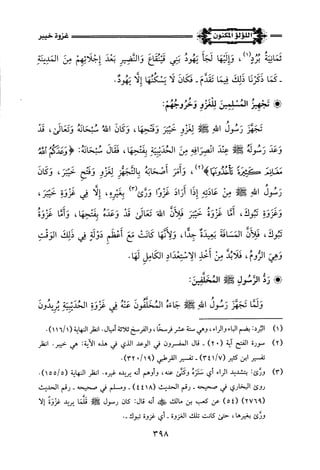 اللؤلؤ المكنون
غزوة خيبر
ثَمَانِيَةُ بُرُدٍ(١)، وَإِلَيْهَا لَجَأَ يَهُودُ بَنِي قَيْنُقَاعَ وَالنَّضِيرِ بَعْدَ إِجْلَائِهِمْ مِنَ المَدِينَةِ
- كَمَا ذَكَرْنَا ذَلِكَ فِيمَا تَقَدَّمَ - فَكَانَ لَا يَسْكُنُهَا إِلَّا يَهُودُ.
تَجْهِيزُ المُسْلِمِينَ لِلْغَزْوِ وَخُرُوجُهُمْ:
تَجَهَّزَ رَسُولُ اللهِ ﷺ لِغَزْوِ خَيْبَرَ وَفَتْحِهَا، وَكَانَ اللهُ سُبْحَانَهُ وَتَعَالَى، قَدْ
وَعَدَ رَسُولَهُ ﷺ عِنْدَ انْصِرَافِهِ مِنَ الحُدَيْبِيَةِ بِفَتْحِهَا، فَقَالَ سُبْحَانَهُ: ﴿وَعَدَكُمُ اللَّهُ
مَغَانِمَ كَثِيرَةً تَأْخُذُونَهَا﴾(٢)، وَأَمَرَ أَصْحَابَهُ بِالتَّجَهُّزِ لِغَزْوِ وَفَتْحِ خَيْبَرَ، وَكَانَ
رَسُولُ اللهِ ﷺ مِنْ عَادَتِهِ إِذَا أَرَادَ غَزْوًا وَرَّى(٣) بِغَيْرِهِ، إِلَّا فِي غَزْوَةِ خَيْبَرَ،
وَغَزْوَةِ تَبُوكَ، أَمَّا غَزْوَةُ خَيْبَرَ فَلِأَنَّ اللهَ تَعَالَى قَدْ وَعَدَهُ بِفَتْحِهَا، وَأَمَّا غَزْوَةُ
تَبُوكَ، فَلِأَنَّ المَسَافَةَ بَعِيدَةٌ جِدًّا، وَلِأَنَّهَا كَانَتْ مَعَ أَعْظَمِ دَوْلَةٍ فِي ذَلِكَ الوَقْتِ
وَهِيَ الرُّومُ، فَلَابُدَّ مِنْ أَخْذِ الِاسْتِعْدَادِ الكَامِلِ لَهَا.
رَدُّ الرَّسُولِ ﷺ المُخَلَّفِينَ:
وَلَمَّا تَجَهَّزَ رَسُولُ اللهِ ﷺ جَاءَهُ المُخَلَّفُونَ عَنْهُ فِي غَزْوَةِ الحُدَيْبِيَةِ يُرِيدُونَ
(١) البُرُد: بضم الباء والراء، وهي ستة عشر فرسخًا، والفرسخ ثلاثة أميال. انظر النهاية (١١٦/١).
(٢) سورة الفتح آية (٢٠) - قال المفسرون في الوعد الذي في هذه الآية: هي خيبر. انظر
تفسير ابن كثير (٣٤١/٧) - تفسير القرطبي (٣٢٠/١٩).
(٣) ورَّى: بتشديد الراء أي سَتَرَهُ وكَنَّى عنه، وأوهم أنه يريده غيره. انظر النهاية (١٥٥/٥).
روى البخاري في صحيحه - رقم الحديث (٤٤١٨) - ومسلم في صحيحه - رقم الحديث
(٢٧٦٩) عن كعب بن مالك أنه قال: كان رسول ﷺ قَلَّمَا يريد غزوة إلا
ورَّى بغيرها، حتى كانت تلك الغزوة - أي غزوة تبوك -.
٣٩٨